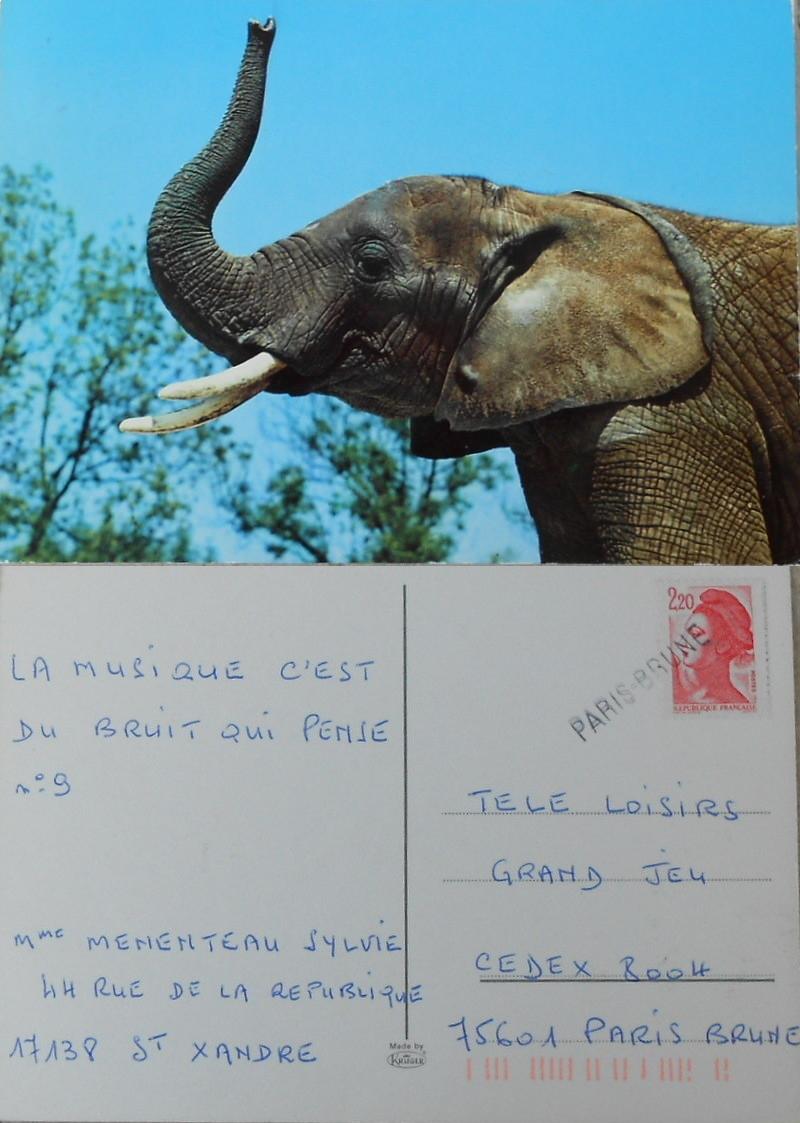 LA MUSIQUE C'EST
DU BRUIT QUI PENSE
n°9
Mme MENENTEAU SYLVIE
44 RUE DE LA REPUBLIQUE
17138 ST XANDRE
Made by
KRÜGER
2,20
POSTES
REPUBLIQUE FRANÇAISE
PARIS-BRUNE
TELE LOISIRS
GRAND JEU
CEDEX 8004
75601 PARIS BRUNE